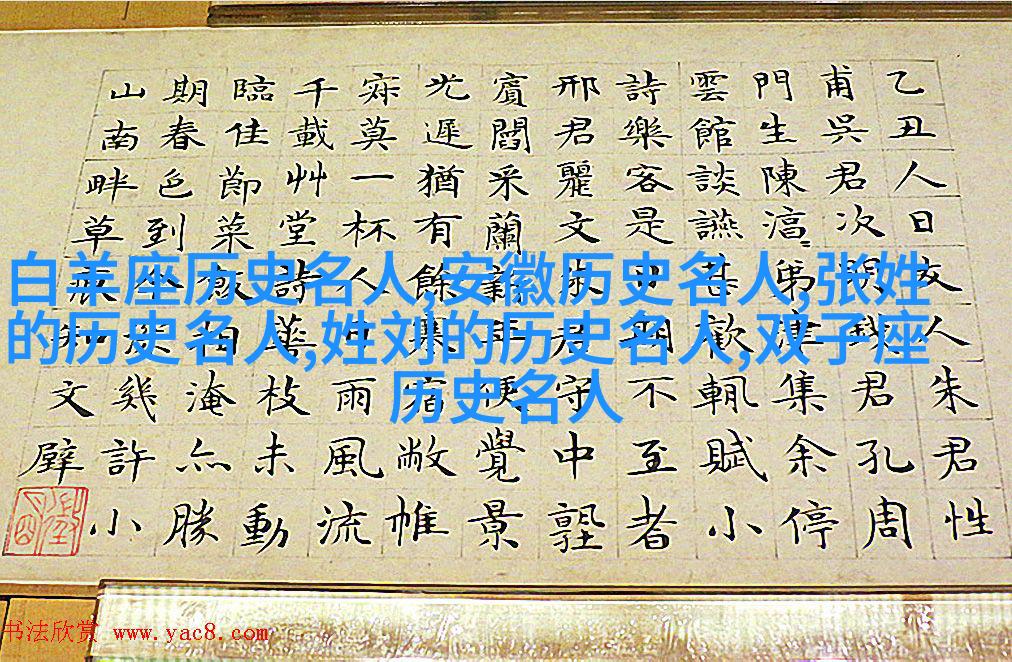 乙丑人日友人朱君性
甫吳君次明錢君孔周
門生陳弟津集余停
雲館談讌甚歡輒賦小
詩樂客是日期不至者
邢君麗文君守中
閻采蘭年覺景
光遲猶有餘寒敝帷
莫一杯人中雨風流
千載艸堂詩華枝未動
臨佳節菜飯相淹亦勝
期春色到坐幾許小
山南畔草痕知文壁
白羊座历史名人,安徽历史名人,张姓
的历史名人,姓刘的历史名人,双子座
历史名人
书法欣赏 www.yac8.com